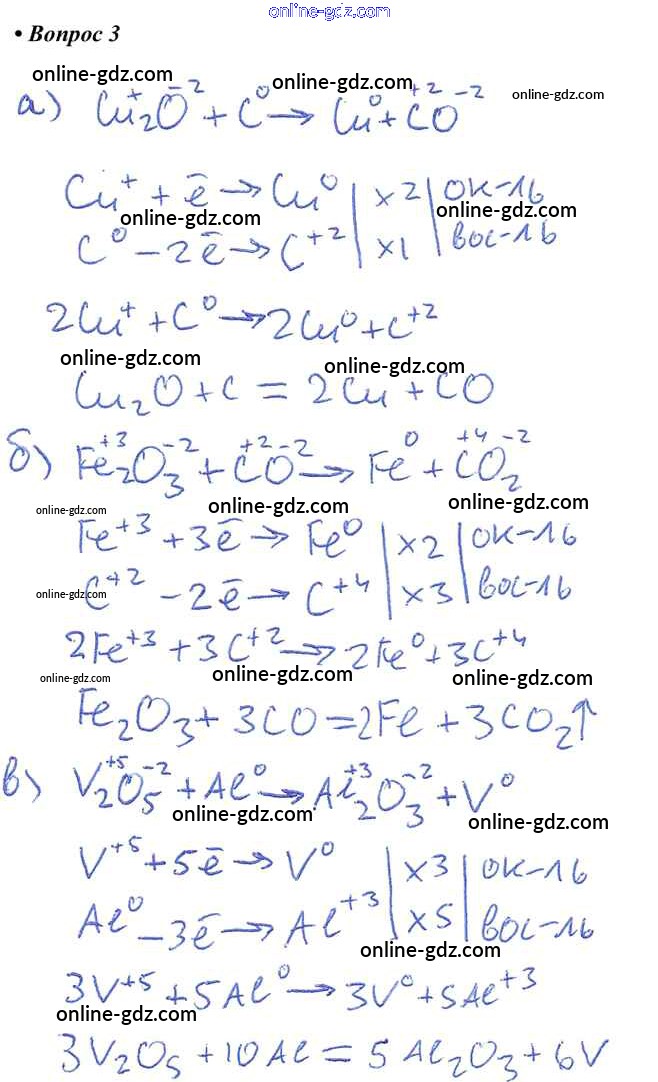 online-gdz.com
• Вопрос 3
online-gdz.com online-gdz.com online-gdz.com
а) Cu⁺₂O⁻² + C⁰ → Cu⁰ + C⁺²O⁻²
Cu⁺ + ē → Cu⁰ | ×2 | ок-ль
online-gdz.com online-gdz.com
C⁰ - 2ē → C⁺² | ×1 | вос-ль
2Cu⁺ + C⁰ → 2Cu⁰ + C⁺²
online-gdz.com online-gdz.com
Cu₂O + C = 2Cu + CO
б) Fe⁺³₂O⁻²₃ + C⁺²O⁻² → Fe⁰ + C⁺⁴O⁻²₂
online-gdz.com online-gdz.com online-gdz.com
Fe⁺³ + 3ē → Fe⁰ | ×2 | ок-ль
online-gdz.com
C⁺² - 2ē → C⁺⁴ | ×3 | вос-ль
2Fe⁺³ + 3C⁺² → 2Fe⁰ + 3C⁺⁴
online-gdz.com online-gdz.com online-gdz.com
Fe₂O₃ + 3CO = 2Fe + 3CO₂↑
в) V⁺⁵₂O⁻²₅ + Al⁰ → Al⁺³₂O⁻²₃ + V⁰
online-gdz.com online-gdz.com
V⁺⁵ + 5ē → V⁰ | ×3 | ок-ль
Al⁰ - 3ē → Al⁺³ | ×5 | вос-ль
online-gdz.com
3V⁺⁵ + 5Al⁰ → 3V⁰ + 5Al⁺³
online-gdz.com
3V₂O₅ + 10Al = 5Al₂O₃ + 6V